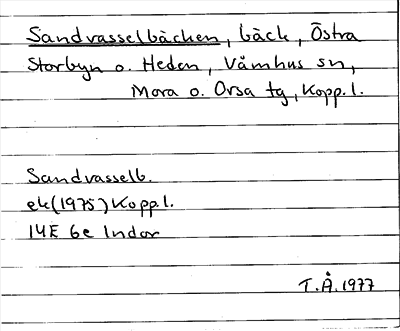 Sandvasselbäcken, bäck, Östra
Storbyn o. Heden, Våmhus sn,
Mora o. Orsa tg, Kopp.l.
Sandvasselb.
ek(1975) Kopp.l.
14E 6e Indor
T.Å. 1977